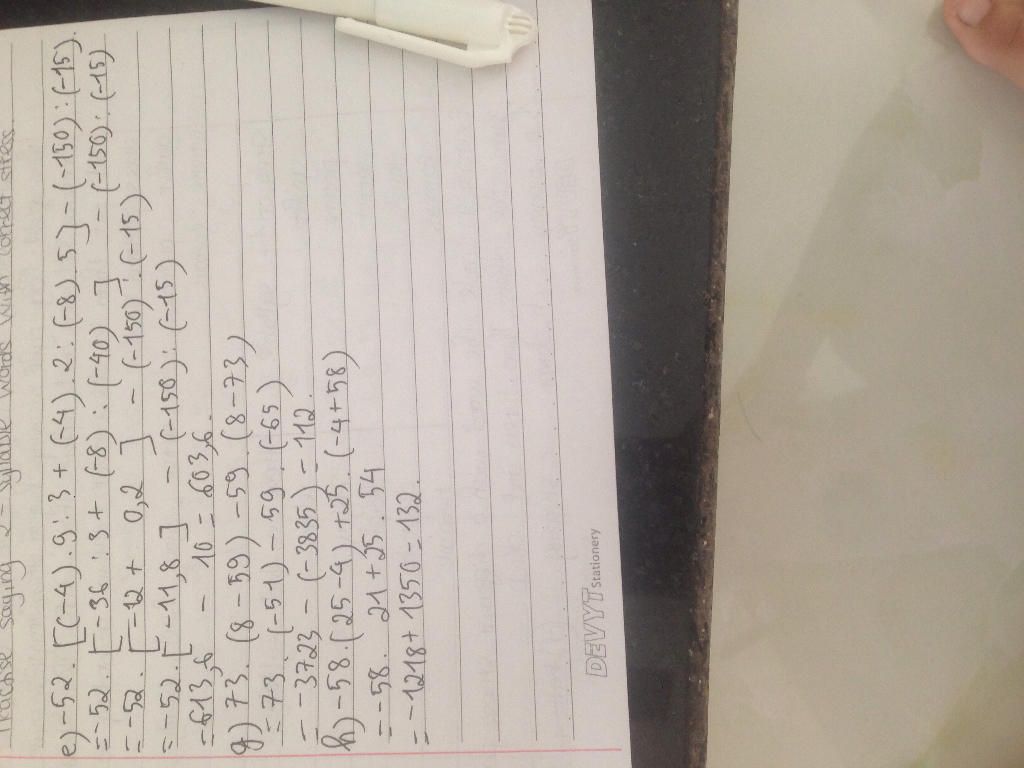 Practise saying 2-syllable words with correct stress
e) -52. [(-4) . 9 : 3 + (-4) . 2 : (-8) . 5] - (-150) : (-15).
= -52. [-36 : 3 + (-8) : (-40) ] - (-150) : (-15)
= -52. [-12 + 0,2 ] - (-150) : (-15)
= -52. [-11,8 ] - (-150) : (-15)
= 613,6 - 10 = 603,6.
g) 73. (8 - 59) - 59 . (8 - 73)
= 73. (-51) - 59 . (-65)
= -3723 - (-3835) = 112.
h) -58. (25 - 4) + 25 . (-4 + 58)
= -58. 21 + 25. 54
= -1218 + 1350 = 132.
DEVYT Stationery